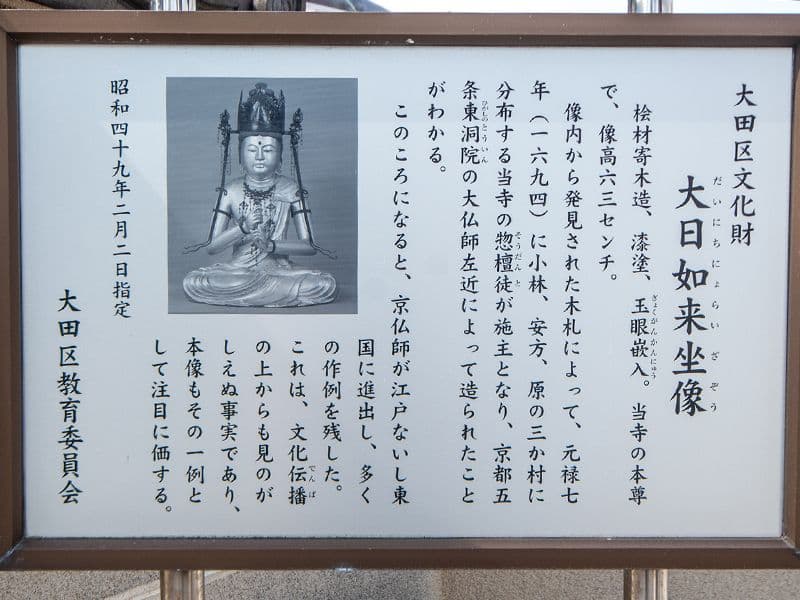 大田区文化財
大日如来坐像
だいにちにょらいざぞう
桧材寄木造、漆塗、玉眼嵌入。当寺の本尊
ぎょくがんかんにゅう
で、像高六三センチ。
像内から発見された木札によって、元禄七
年(一六九四)に小林、安方、原の三か村に
分布する当寺の惣檀徒が施主となり、京都五
そうだんと
条東洞院の大仏師左近によって造られたこと
ひがしのとういん
がわかる。
このころになると、京仏師が江戸ないし東
国に進出し、多く
の作例を残した。
これは、文化伝播
でんぱ
の上からも見のが
しえぬ事実であり、
本像もその一例と
して注目に価する。
昭和四十九年二月二日指定
大田区教育委員会